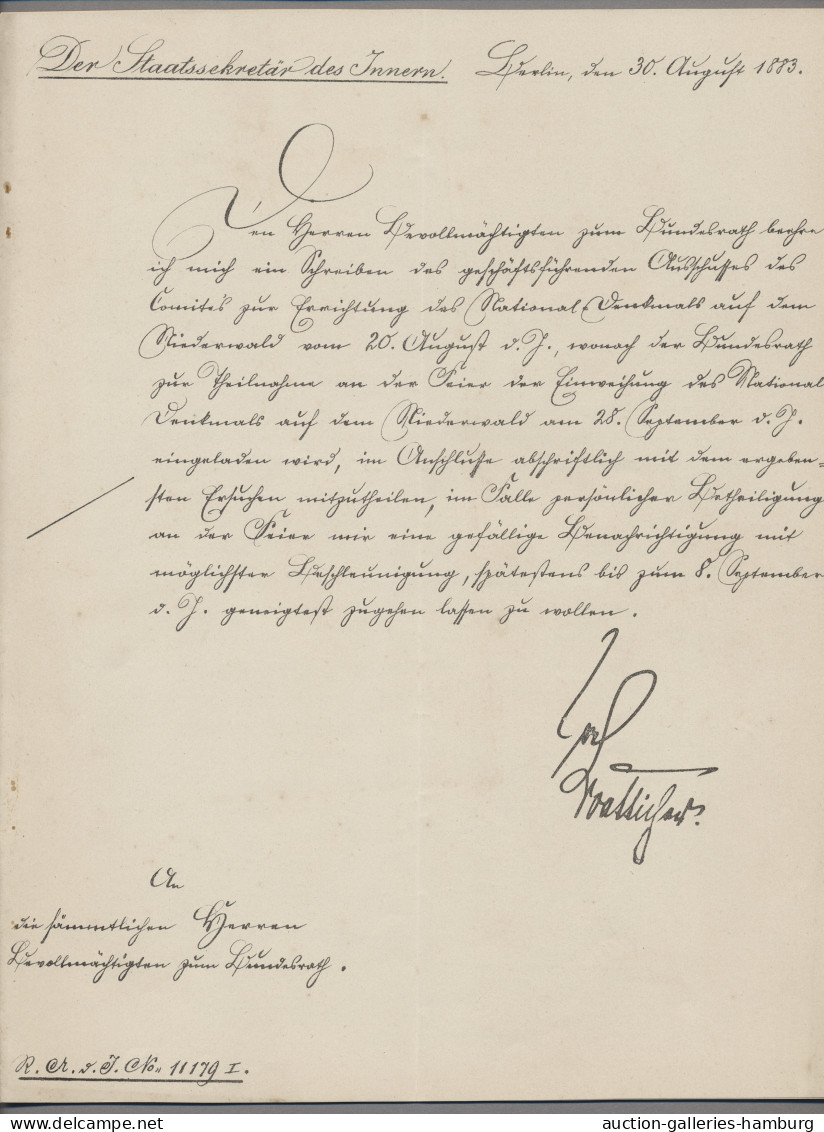 Der Staatssekretär des Innern. Berlin, den 30. August 1883.
Den Herren Bevollmächtigten zum Bundesrath beehre
ich mich ein Schreiben des geschäftsführenden Ausschusses des
Comités zur Errichtung des National-Denkmals auf dem
Niederwald vom 20. August d. J., wonach der Bundesrath
zur Theilnahme an der Feier der Einweihung des National
Denkmals auf dem Niederwald am 28. September d. J.
eingeladen wird, im Anschlusse abschriftlich mit dem ergeben=
sten Ersuchen mitzutheilen, im Falle persönlicher Betheiligung
an der Feier mir eine gefällige Benachrichtigung mit
möglichster Beschleunigung, spätestens bis zum 8. September
d. J. geneigtest zugehen lassen zu wollen.
Boetticher.
An
die sämmtlichen Herren
Bevollmächtigten zum Bundesrath.
R. A. d. J. No. 11179 I.
auction-galleries-hamburg